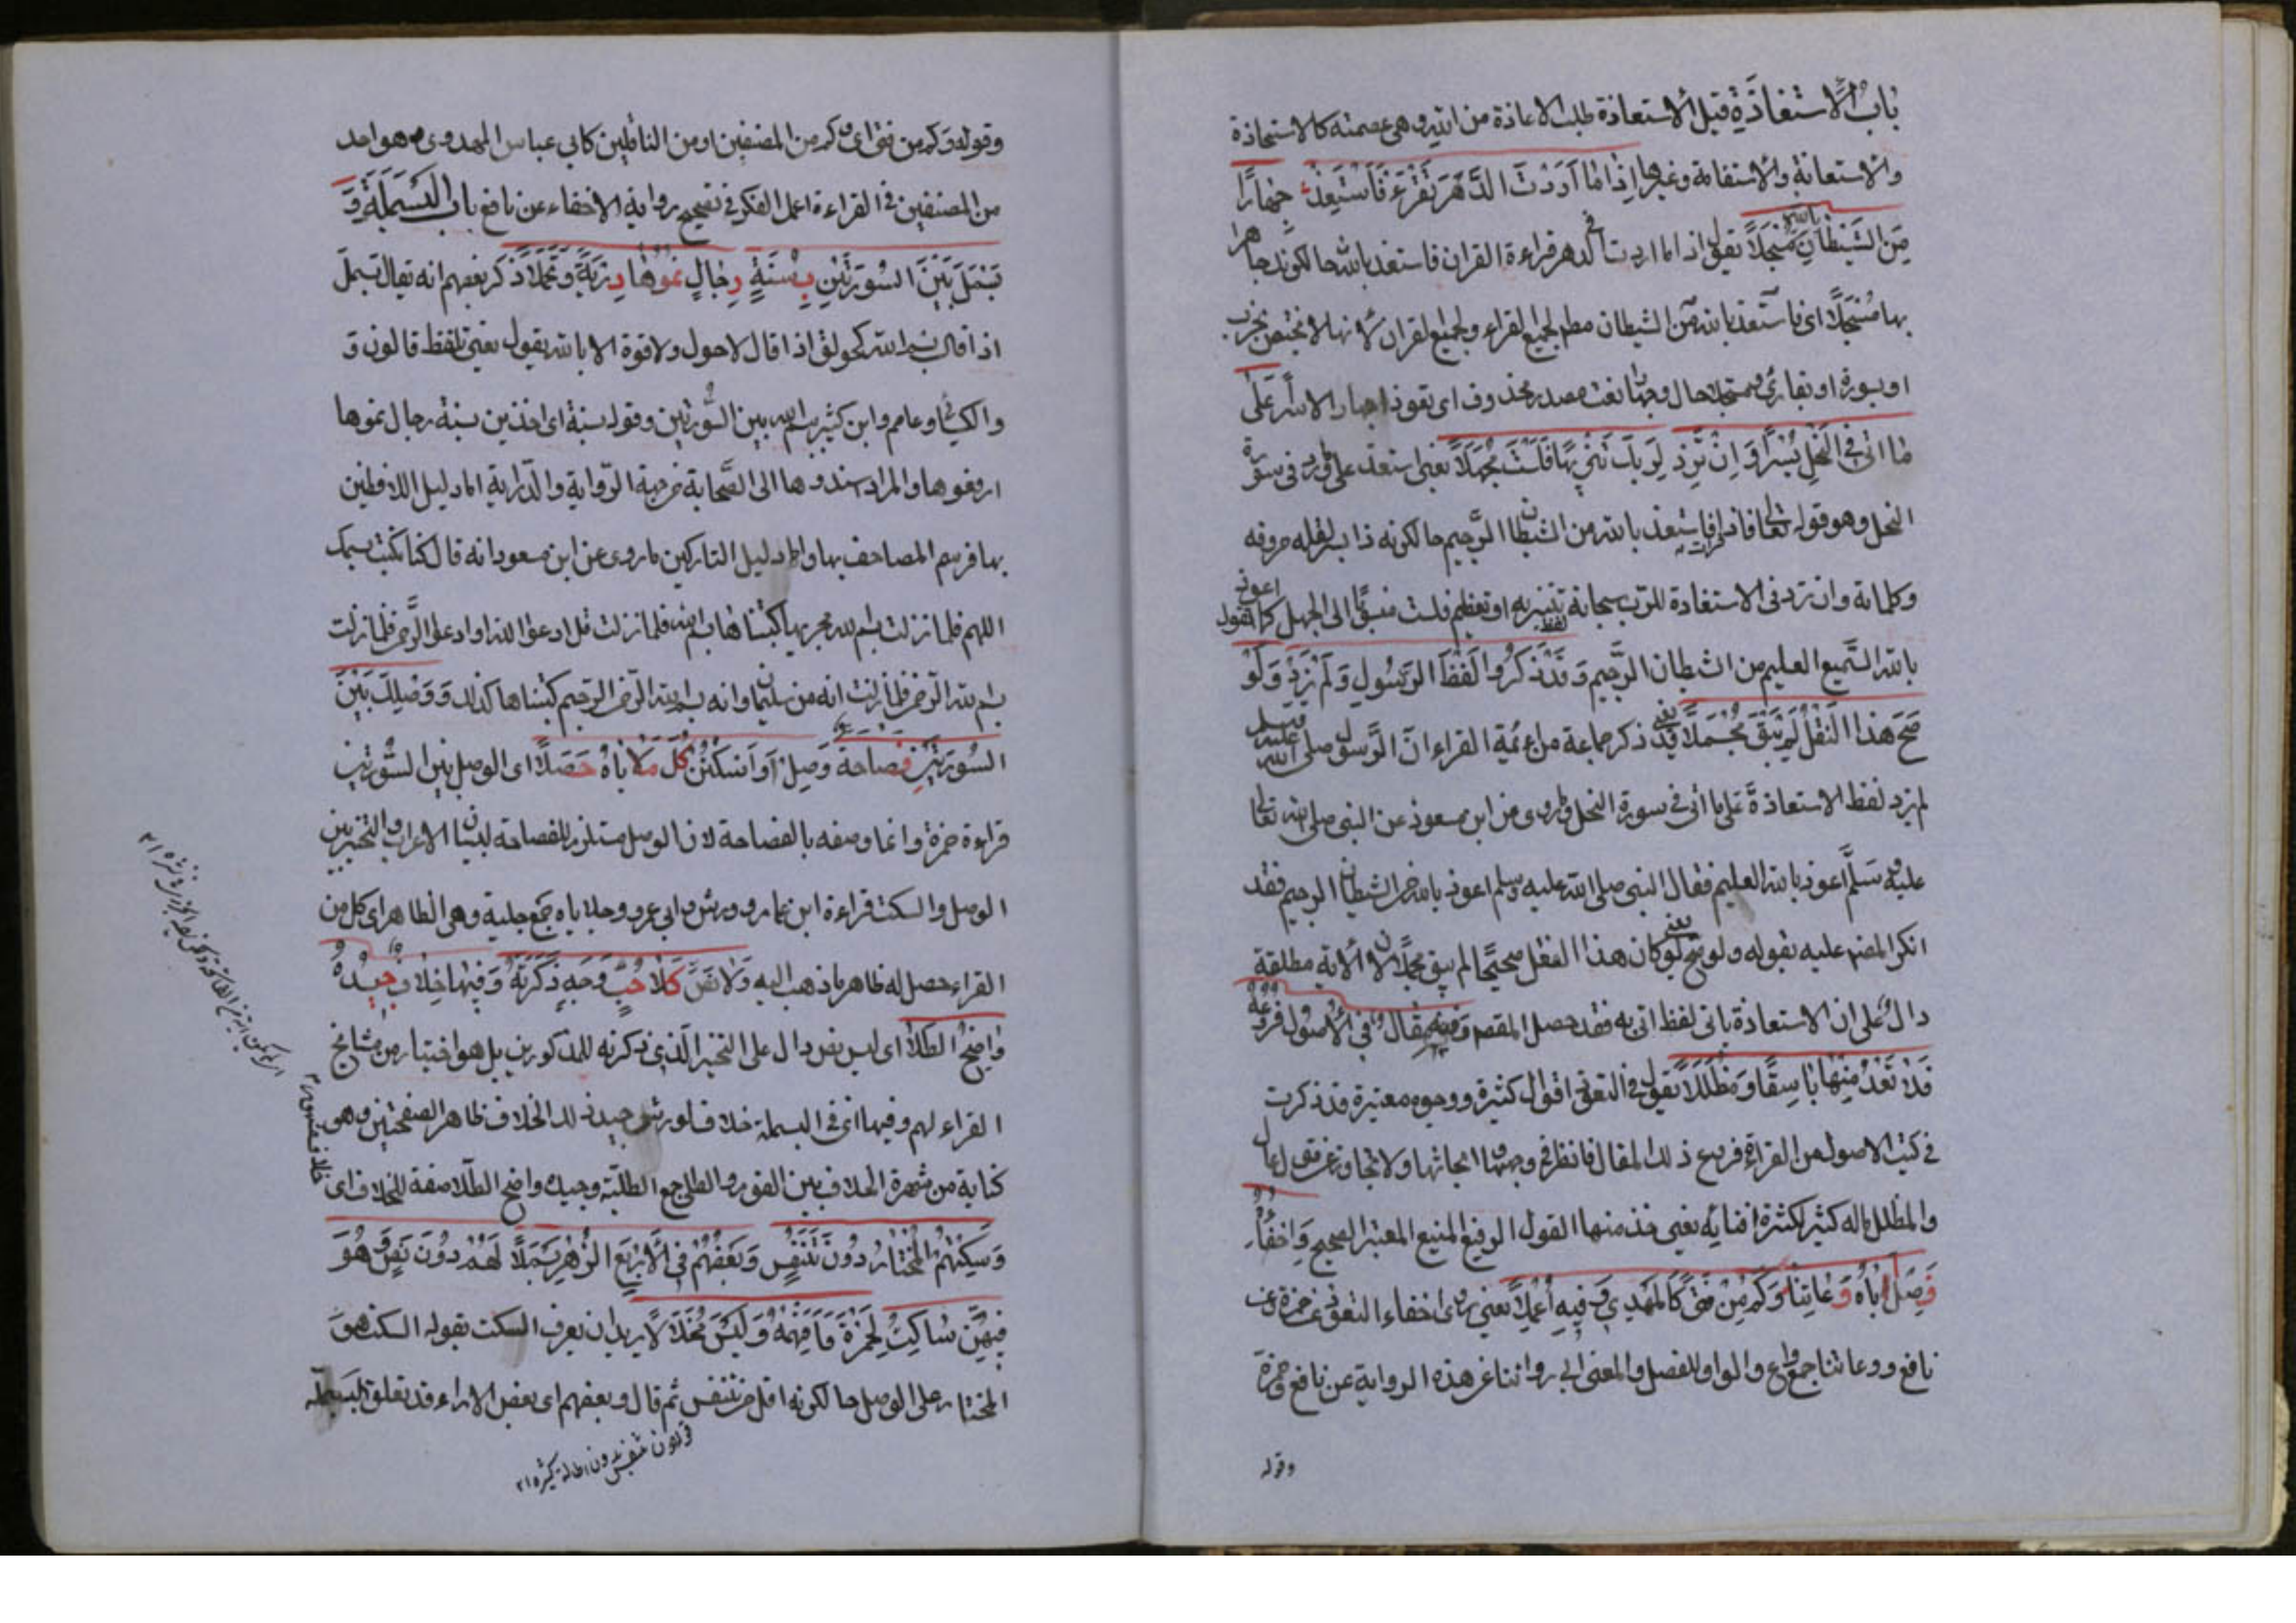 باب الاستعاذة قيل الاستعاذة طلب الاعاذة من الله وهى عصمته كالاستجاذة
والاستعانة والاستقامة وغيرها اذا ما اردت الدهر تقرء فاستعذ جهارا
من الشيطان بالله مسجلا يقول اذا ما اردت فى الدهر قراءة القران فاستعذ بالله حالكونك جاهرا
بها مسجلا اى فاستعذ بالله من الشيطان مطم لجميع القراء ولجميع القران لانها لا تختص بحزب
او سورة او بقارئ ومسجلا حال وجهارا نعت مصدر محذوف اى تعوذا جهارا لا سرا على
ما اتى فى النحل يسرا وان تزد لربك تنزيها فلست مجهلا يعنى استعذ على ما ورد فى سورة
النحل وهو قوله تعالى فاذا قرات فاستعذ بالله من الشيطان الرجيم حالكونه ذا يسر لقلة حروفه
وكلماته وان تزد فى الاستعاذة للرب سبحانه لفظ تنزيه او تعظيم فلست منسبا الى الجهل كما تقول اعوذ
بالله السميع العليم من الشيطان الرجيم وقد ذكروا لفظ الرسول ولم يزد ولو
صح هذا النقل لم يبق مجملا يعنى قد ذكر جماعة من ائمة القراء ان الرسول صلى الله عليه وسلم
لم يزد لفظ الاستعاذة على ما اتى فى سورة النحل وروى من ابن مسعود عن النبى صلى الله تعالى
عليه وسلم اعوذ بالله العليم فقال النبى صلى الله عليه وسلم اعوذ بالله من الشيطان الرجيم فقد
انكر المصنف عليه بقوله ولو صح يعنى لو كان هذا النقل صحيحا لم يبق مجملا لان الاية مطلقة
دال على ان الاستعاذة باى لفظ اتى به فقد حصل المقصم وفيه مقال فى الاصول فروعه
فلا تعد منها باسقا ومظللا يقول فى التعوذ اقوال كثيرة ووجوه معتبرة قد ذكرت
فى كتب الاصول من القراءة فروع ذلك المقال فانظر فى وجهها ابحاثها ولا تجاوز عن قول عال
والمظلل ماله كثير لكثرة افنائه يعنى خذ منها القول الرفيع المنيع المعتبر الصحيح واخفاء
فصل اباه وعاتنا وكم من فتى كالمهدوى فيه اعملا يعنى روى اخفاء التعوذ عن حمزة وعن
نافع ووعاتنا جمع واع والواو للفصل والمعنى ابى رواتنا عن هذه الرواية عن نافع وحمزة
وقوله
وقوله وكم من فتى اى وكم من المصنفين او من الناقلين كابى عباس المهدوى وهو احد
من المصنفين فى القراءة اعمل الفكر فى تصحيح رواية الاخفاء عن نافع باب البسملة و
بسمل بين السورتين بسنة رجال نموها درية وتحملا ذكر بعضهم انه يقال بسمل
اذا قال بسم الله كحولق اذا قال لاحول ولاقوة الا بالله يقول يعنى تلفظ قالون و
والكسائى وعاصم وابن كثير بسم الله بين السورتين وقوله بسنة اى اخذين بسنة رجال نموها
ارفعوها والمراد اسندوها الى الصحابة من جهة الرواية والدراية اما دليل اللافظين
بها فرسم المصاحف بها واما دليل التاركين ما روى عن ابن مسعود انه قال كنا نكتب باسمك
اللهم فلما نزلت بسم الله مجريها كتبناها بسم الله فلما نزلت قل ادعوا الله او ادعوا الرحمن فلما نزلت
بسم الله الرحمن فلما نزلت انه من سليمان وانه بسم الله الرحمن الرحيم كتبناها كذلك ووصلك بين
السورتين فصاحة وصل او اسكتن كل جلاياه حصلا اى الوصل بين السورتين
قراءة حمزة وانما وصفه بالفصاحة لان الوصل مستلزم للفصاحة لبيان الاعراب والتخيير بين
الوصل والسكت قراءة ابن عامر وورش وابى عمرو وجلاياه جمع جلية وهى الظاهر اى كل من
القراء حصل له ظاهر ما ذهب اليه ولا نص كلا حب وجه ذكرته وفيها خلاف جيده
واضح الطلا اى ليس نص دال على التخيير الذى ذكرته للمذكورين بل هو اختيار من مشايخ
القراء لهم وفيها اى فى البسملة خلاف لورش جيد ذلك الخلاف ظاهر الصفحتين وهو
كناية من شهرة الخلاف بين القوم والطلا جمع الطلية وجيده واضح الطلا صفة للخلاف اى
وسكتهم المختار دون تنفس وبعضهم فى الاربع الزهر بسملا لهم دون نص وهو
فيهن ساكت لحمزة فافهمه وليس مخذلا يريد ان يعرف السكت بقوله السكت هو
المختار على الوصل حالكونه اقل من تنفس ثم قال وبعضهم اى بعض الاراء قد تعلق البسملة